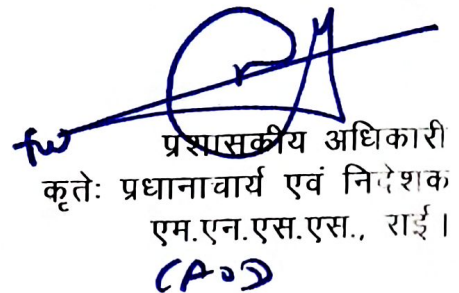 प्रशासकीय अधिकारी
कृतेः प्रधानाचार्य एवं निदेशक
एम.एन.एस.एस., राई।